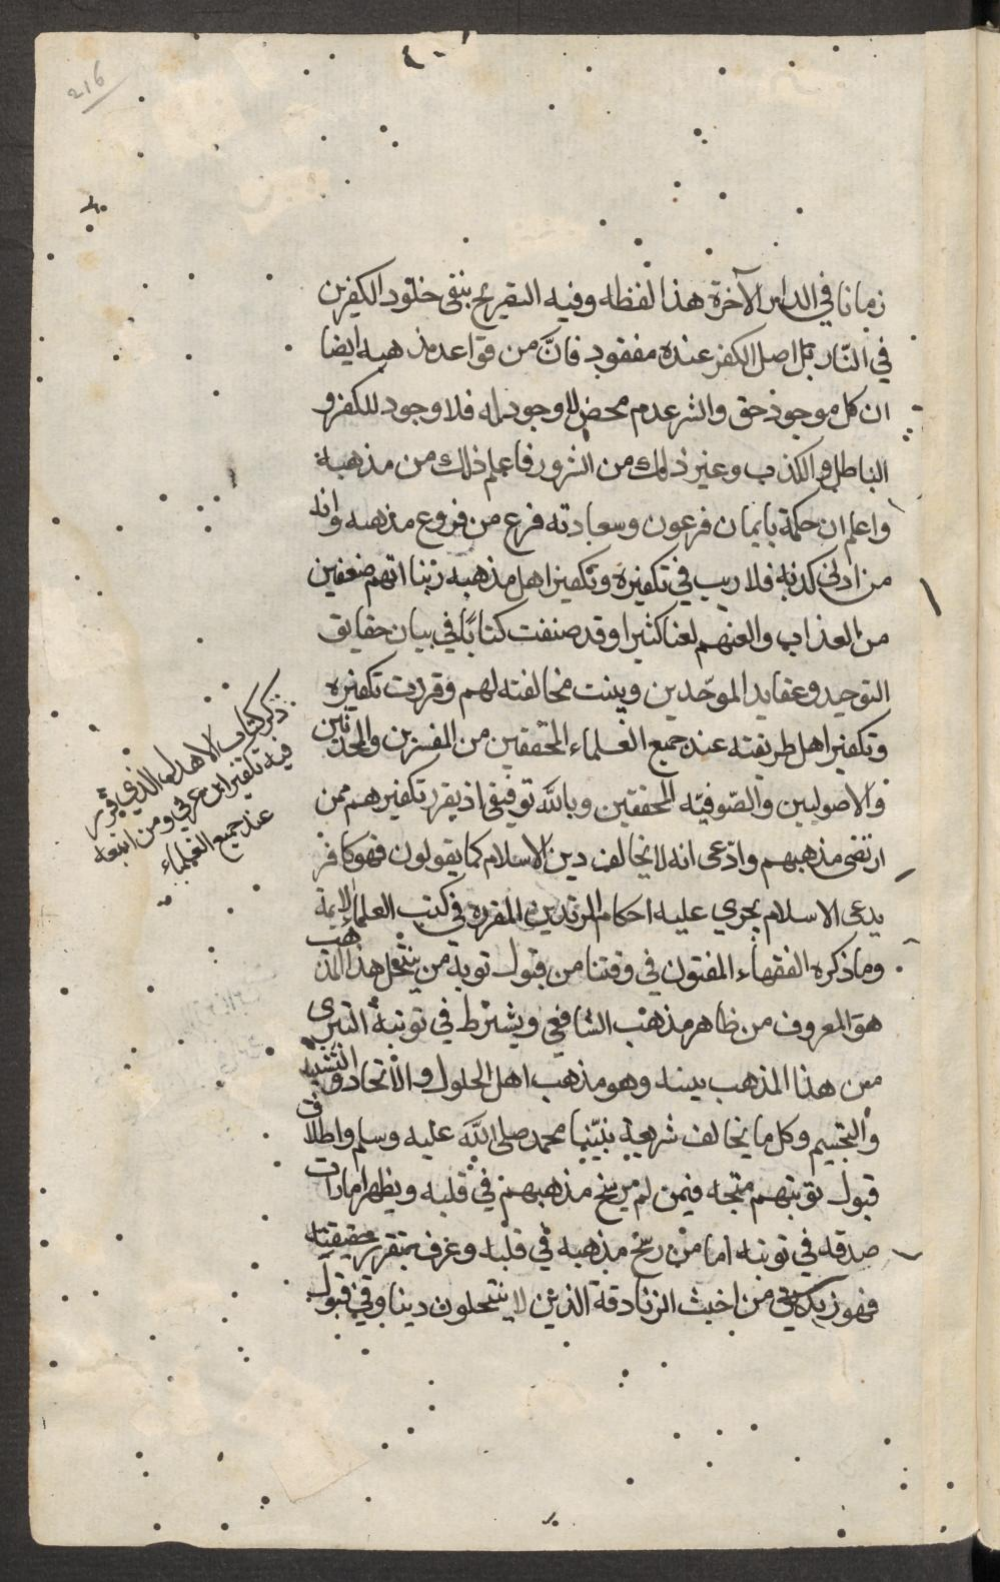 216
زمانا في الدار الآخرة هذا لفظه وفيه التصريح بنفي خلود الكفرين
في النار بل اصل الكفر عنده مفقود فانّ من قواعد مذهبه ايضا
ان كل موجود حق والشر عدم محض لا وجود له فلا وجود للكفر و
الباطل والكذب وغير ذلك من الشرور فاعلم ذلك من مذهبه
واعلم ان حكمه بايمان فرعون وسعادته فرع من فروع مذهبه وانه
من ادنى كذبه فلا ريب في تكفيره وتكفير اهل مذهبه ربنا اتهم ضعفين
من العذاب والعنهم لعنا كثيرا وقد صنفت كتابا في بيان حقايق
التوحيد وعقايد الموحّدين وبينت مخالفته لهم وقررت تكفيره
وتكفير اهل طريقته عند جميع العلماء المحققين من المفسرين والمحدثين
والاصوليين والصّوفيّه المحققين وبالله توفيقى اذ يقرر تكفيرهم ممن
ارتضى مذهبهم وادّعى انه لا يخالف دين الاسلام كما يقولون فهو كافر
يدعى الاسلام يجري عليه احكام المرتدين المقرره في كتب العلماء الايمة
وما ذكره الفقهاء المفتون في وقتنا من قبول توبة من ينتحل هذا المذهب
هو المعروف من ظاهر مذهب الشافعي ويشترط في توبته التبرى
من هذا المذهب بينه وهو مذهب اهل الحلول والاتحاد والتشبيه
والتجسيم وكل ما يخالف شريعة نبيّنا محمد صلى الله عليه وسلم واطلاق
قبول توبتهم متجه فيمن لم يرسخ مذهبهم في قلبه ويظهر امارات
صدقه في توبته اما من رسخ مذهبه في قلبه وعرف بتقرير حقيقته
فهو زنديق من اخبث الزنادقة الذين لا ينتحلون دينا وفي قبول
ذكر كتاب الاهدل الذي قرر
فيه تكفير ابن عربي ومن اتبعه
عند جميع العلماء